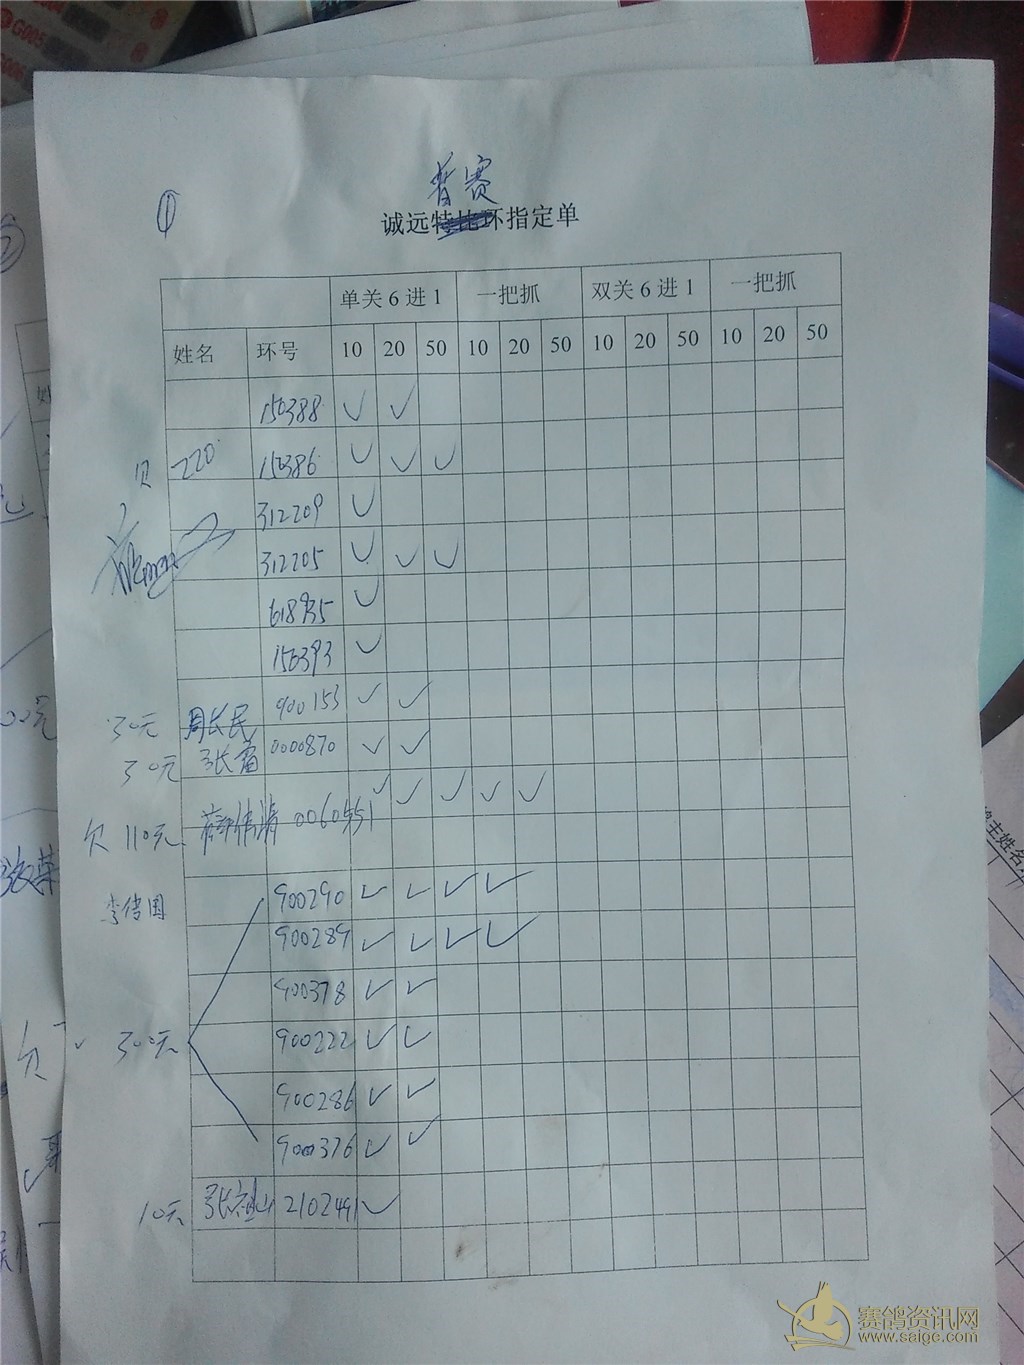 普赛
①
诚远特比环指定单
单关6进1 一把抓 双关6进1 一把抓
姓名 环号 10 20 50 10 20 50 10 20 50 10 20 50
150388 ✓ ✓
欠 220 150386 ✓ ✓ ✓
312209 ✓
312205 ✓ ✓ ✓
618935 ✓
150393 ✓
30元 周长民 900153 ✓ ✓
30元 张富 0000870 ✓ ✓
欠 110元 ✓ ✓ ✓ ✓ ✓
李传国 900290 ✓ ✓ ✓ ✓
900289 ✓ ✓ ✓ ✓
900378 ✓ ✓
欠 300元 900222 ✓ ✓
900286 ✓ ✓
900376 ✓ ✓
10元 2102491 ✓
赛鸽资讯网
www.saige.com